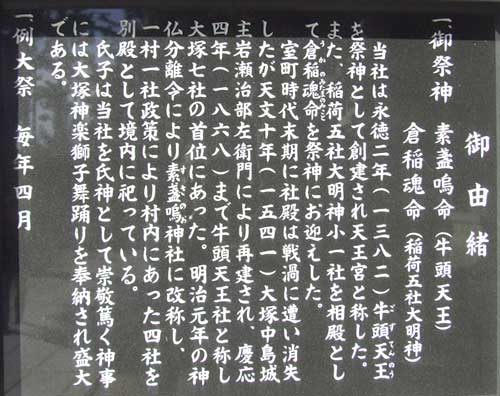 御由緒
一、御祭神　素盞嗚命（牛頭天王）
倉稲魂命（稲荷五社大明神）
当社は永徳二年（一三八二）牛頭天王
を祭神として創建され天王宮と称した。
また、稲荷五社大明神小一社を相殿とし
て倉稲魂命を祭神にお迎えした。
室町時代末期に社殿は戦渦に遭い消失
したが天文十年（一五四一）大塚中島城
主岩瀬治部左衛門により再建され、慶応
四年（一八六八）まで牛頭天王社と称し
大塚七社の首位にあった。明治元年の神
仏分離令により素盞嗚神社に改称し、
一村一社政策により村内にあった四社を
別殿として境内に祀っている。
氏子は当社を氏神として崇敬篤く神事
には大塚神楽獅子舞踊りを奉納され盛大
である。
一、例大祭　毎年四月